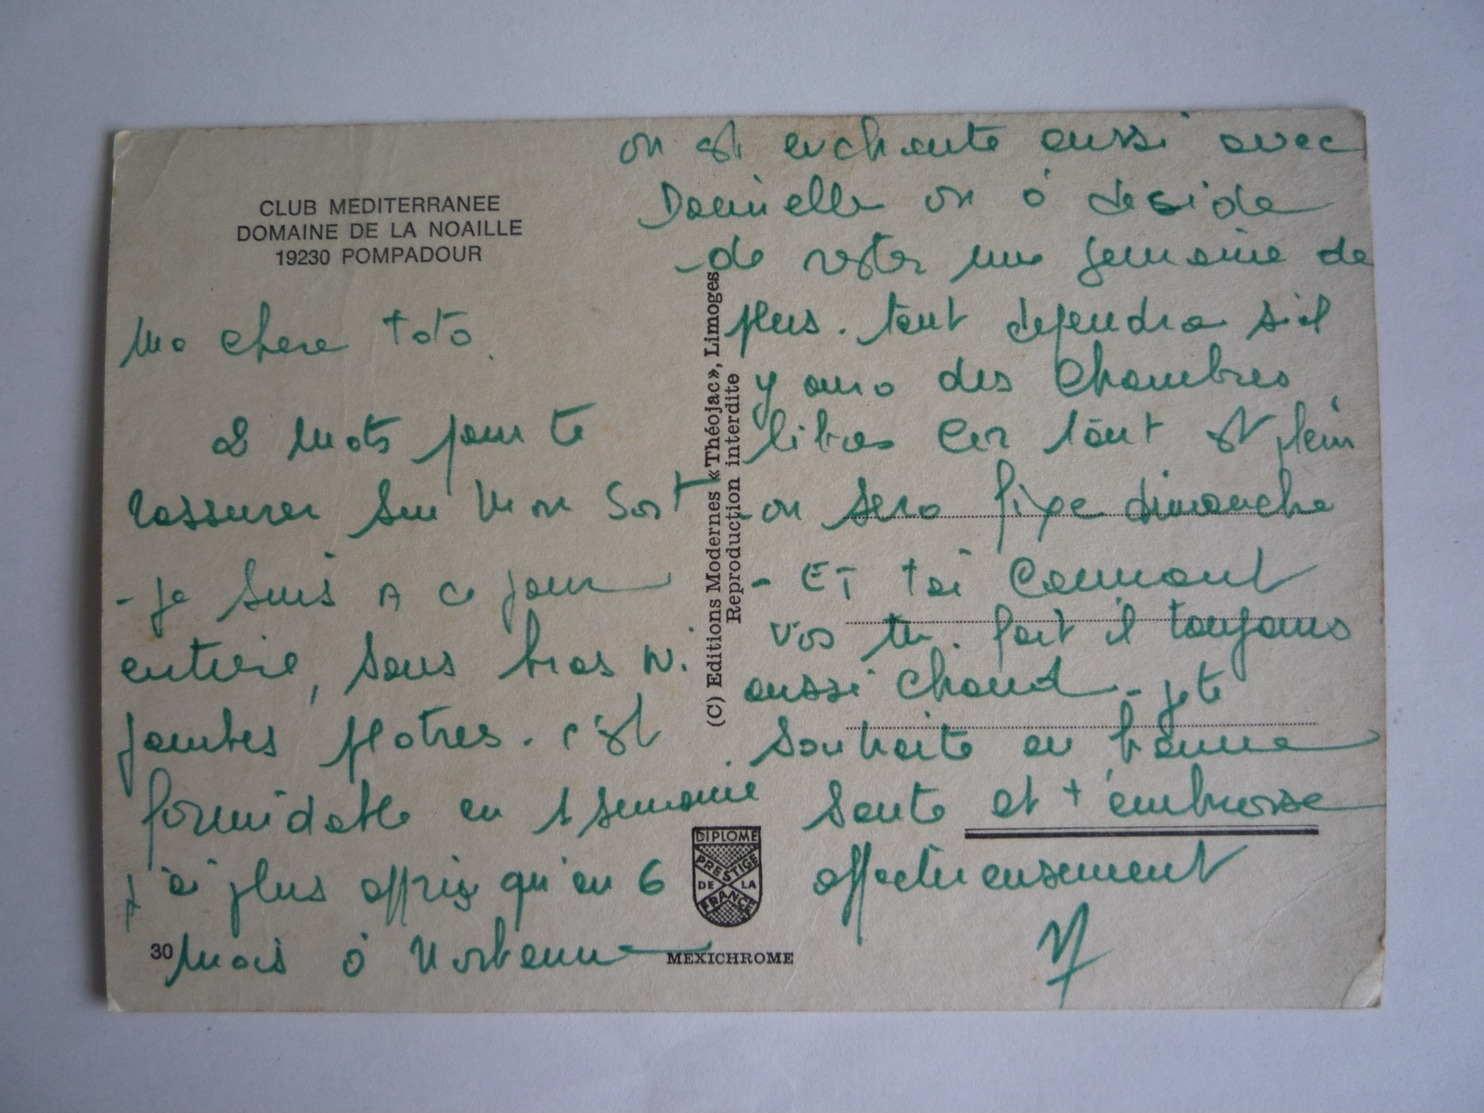 CLUB MEDITERRANEE
DOMAINE DE LA NOAILLE
19230 POMPADOUR
Ma chere toto.
2 mots pour te
rassurer sur mon sort
- je suis A ce jour
entiere, sans bras ni
jambes platres. c'est
formidable en 1 semaine
j'ai plus appris qu'en 6
mois à
on est enchante aussi avec
Danielle on à deside
- de rester une semaine de
plus. tout dependra s'il
y aura des chambres
libres car tout est plein
- on sera fixe dimanche
- ET toi comment
vas tu. fait il toujours
aussi chaud - je te
souhaite en bonne
sante et t'embrasse
affectueusement
(C) Editions Modernes «Théojac», Limoges
Reproduction interdite
DIPLOME
PRESTIGE
DE LA
FRANCE
30
MEXICHROME